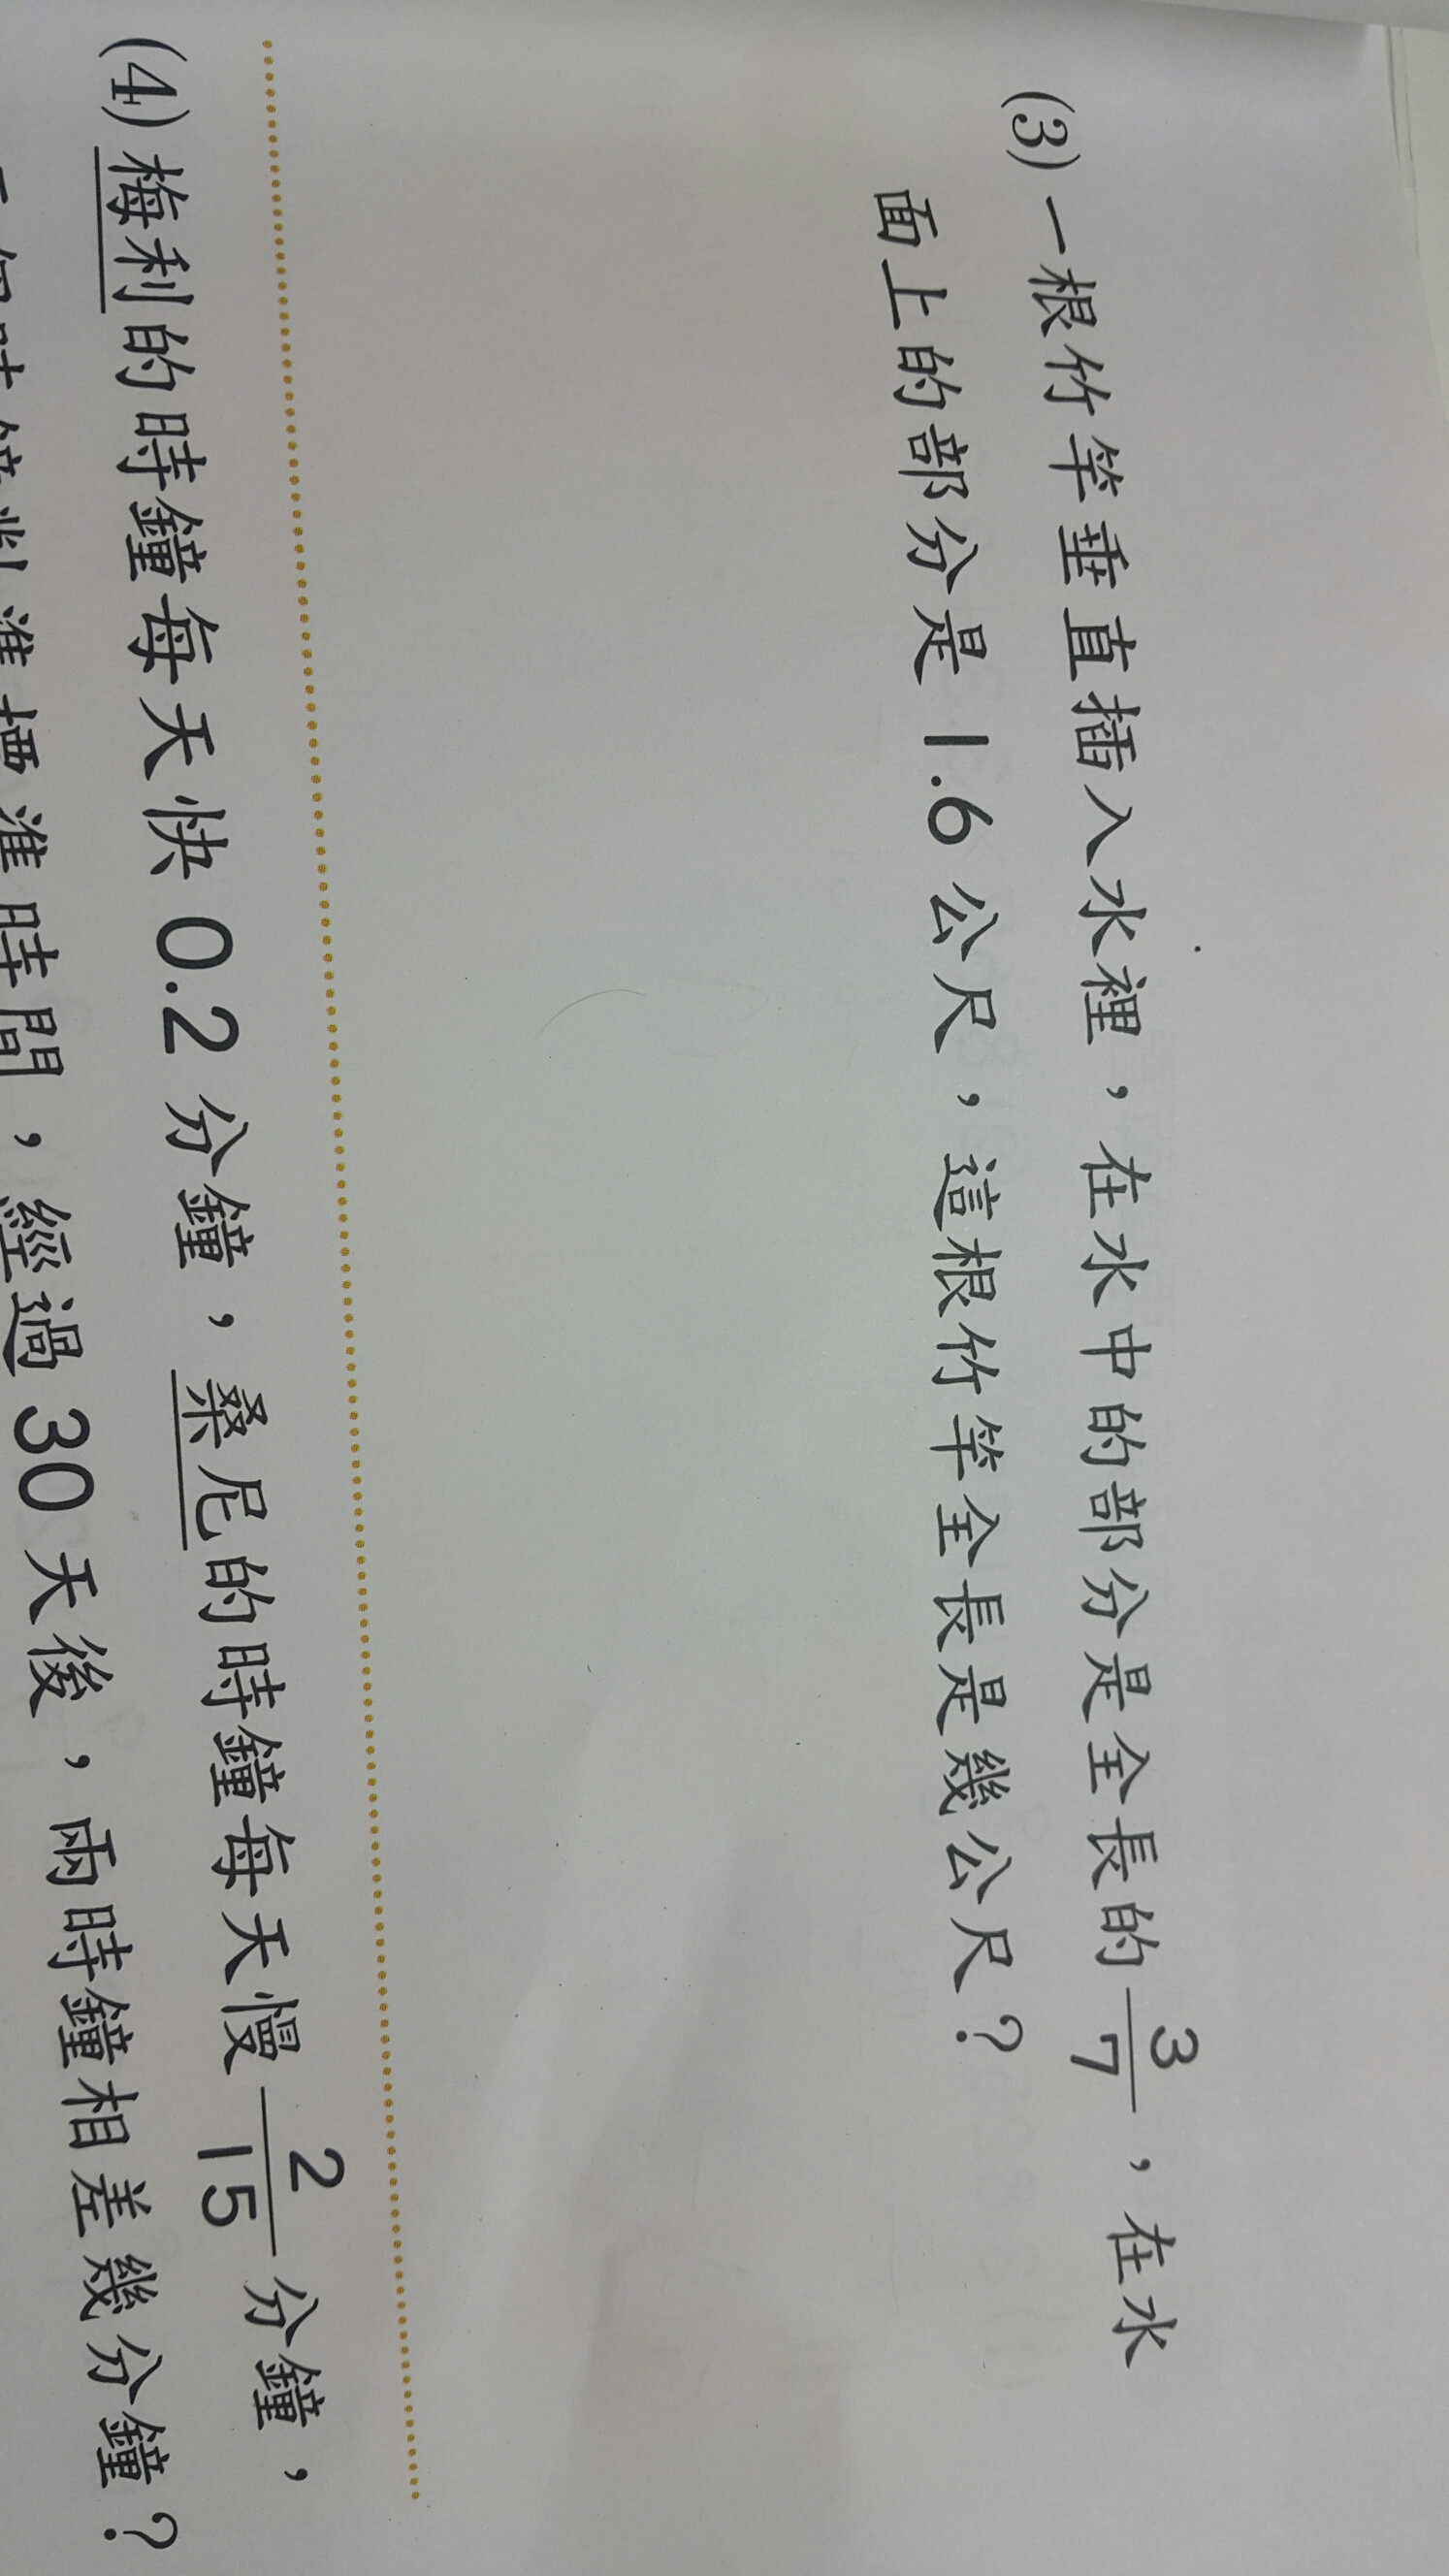 (3) 一根竹竿垂直插入水裡，在水中的部分是全長的 3/7，在水
面上的部分是 1.6 公尺，這根竹竿全長是幾公尺？
(4) 梅利的時鐘每天快 0.2 分鐘，桑尼的時鐘每天慢 2/15 分鐘，
時鐘對準標準時間，經過 30 天後，兩時鐘相差幾分鐘？